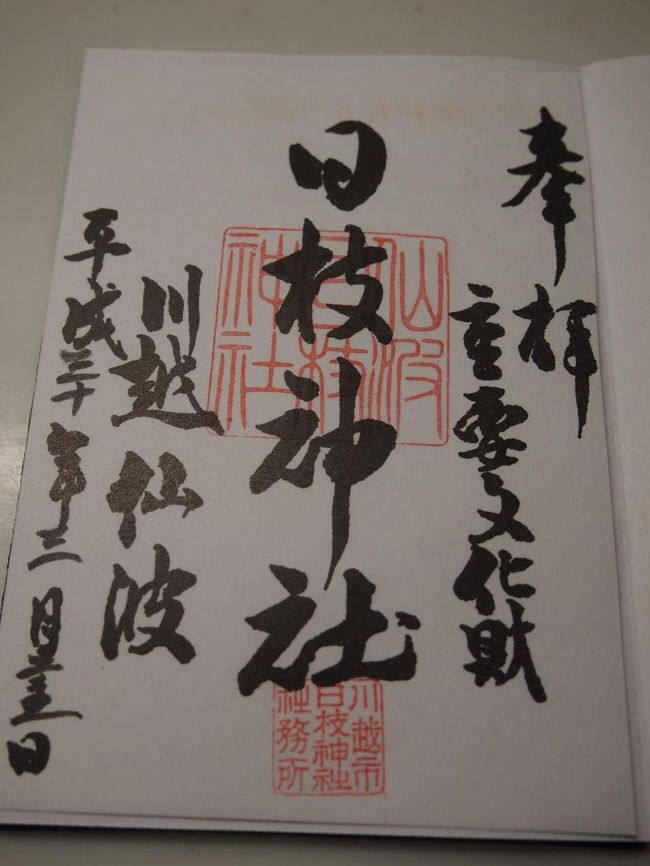 奉拝
重要文化財
日枝神社
川越仙波
平成三十年三月 日
仙波
日枝
神社
川越市
日枝神社
社務所